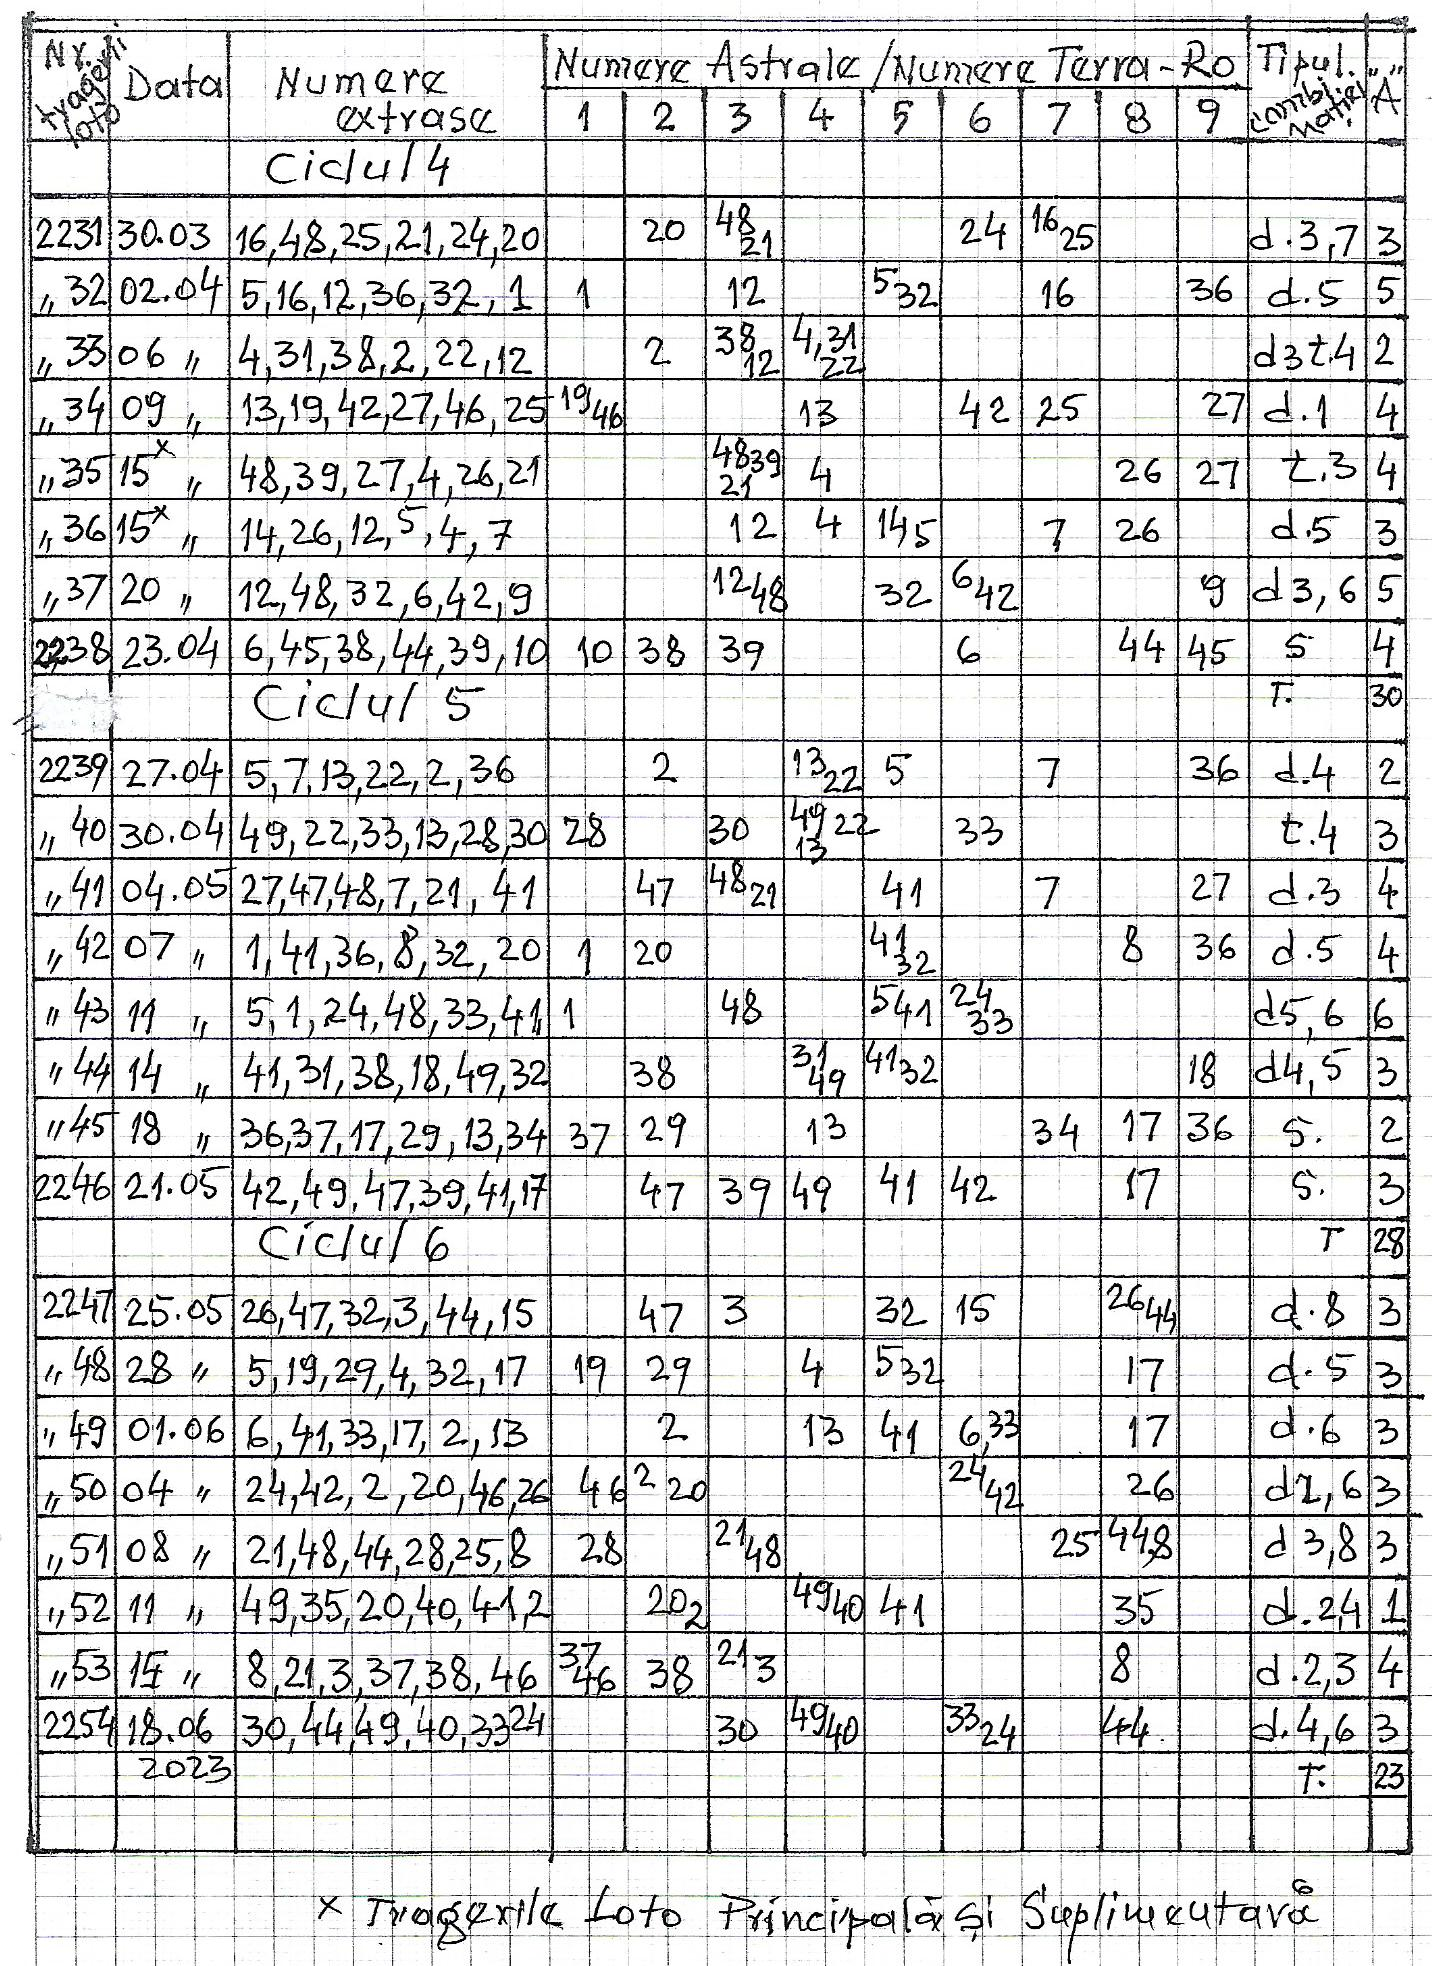 Nr. tragerii loto Data Numere extrase Numere Astrale / Numere Terra-Ro Tipul combinației "A"
1 2 3 4 5 6 7 8 9
Ciclul 4
2231 30.03 16,48,25,21,24,20 20 48 21 24 16 25 d.3,7 3
„32 02.04 5,16,12,36,32,1 1 12 5 32 16 36 d.5 5
„33 06 „ 4,31,38,2,22,12 2 38 12 4,31 22 d3t.4 2
„34 09 „ 13,19,42,27,46,25 19 46 13 42 25 27 d.1 4
„35 15x „ 48,39,27,4,26,21 48 39 21 4 26 27 t.3 4
„36 15x „ 14,26,12,5,4,7 12 4 14 5 7 26 d.5 3
„37 20 „ 12,48,32,6,42,9 12 48 32 6 42 9 d3,6 5
2238 23.04 6,45,38,44,39,10 10 38 39 6 44 45 S 4
Ciclul 5 T. 30
2239 27.04 5,7,13,22,2,36 2 13 22 5 7 36 d.4 2
„40 30.04 49,22,33,13,28,30 28 30 49 22 13 33 t.4 3
„41 04.05 27,47,48,7,21,41 47 48 21 41 7 27 d.3 4
„42 07 „ 1,41,36,8,32,20 1 20 41 32 8 36 d.5 4
„43 11 „ 5,1,24,48,33,41 1 48 5 41 24 33 d5,6 6
„44 14 „ 41,31,38,18,49,32 38 31 49 41 32 18 d4,5 3
„45 18 „ 36,37,17,29,13,34 37 29 13 34 17 36 S. 2
2246 21.05 42,49,47,39,41,17 47 39 49 41 42 17 S. 3
Ciclul 6 T 28
2247 25.05 26,47,32,3,44,15 47 3 32 15 26 44 d.8 3
„48 28 „ 5,19,29,4,32,17 19 29 4 5 32 17 d.5 3
„49 01.06 6,41,33,17,2,13 2 13 41 6,33 17 d.6 3
„50 04 „ 24,42,2,20,46,26 46 2 20 24 42 26 d2,6 3
„51 08 „ 21,48,44,28,25,8 28 21 48 25 44,8 d3,8 3
„52 11 „ 49,35,20,40,41,2 20 2 49 40 41 35 d.2,4 1
„53 15 „ 8,21,3,37,38,46 37 46 38 21 3 8 d.2,3 4
2254 18.06 30,44,49,40,33 24 30 49 40 33 24 44 d.4,6 3
2023 T. 23
x Tragerile Loto Principală și Suplimentară